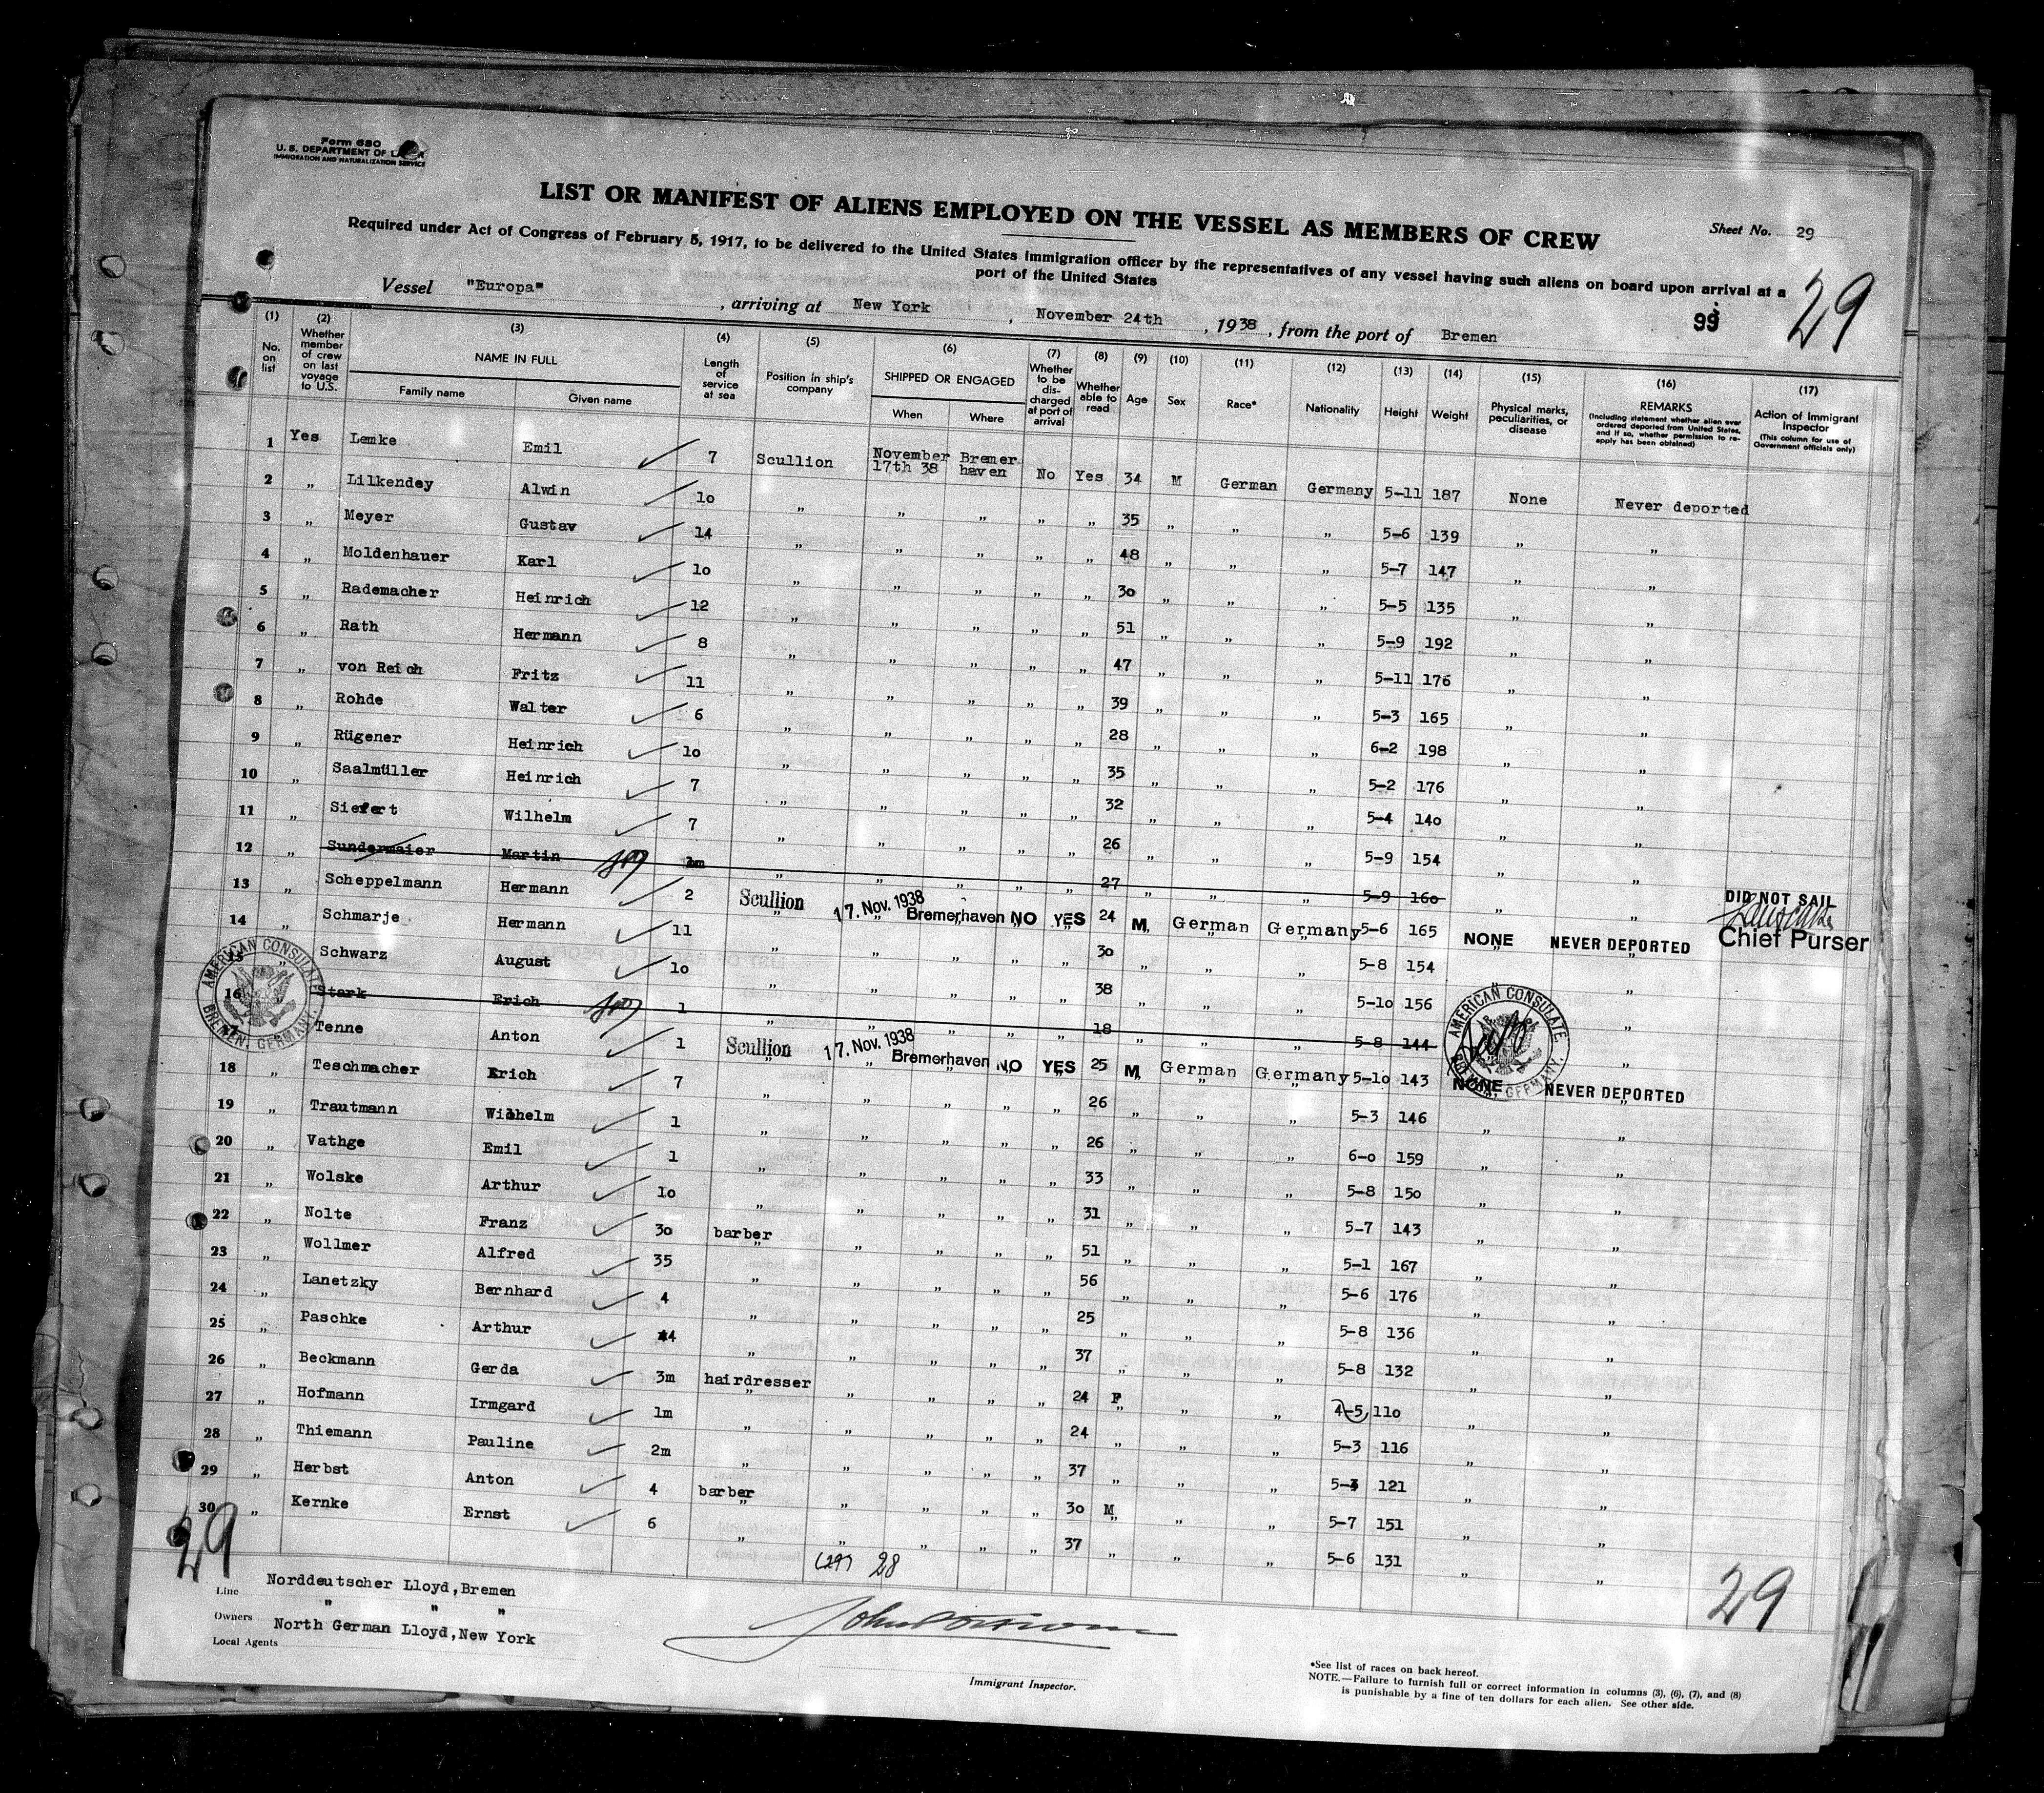 Form 680
U. S. DEPARTMENT OF
IMMIGRATION AND NATURALIZATION SERVICE
LIST OR MANIFEST OF ALIENS EMPLOYED ON THE VESSEL AS MEMBERS OF CREW
Sheet No. 29
Required under Act of Congress of February 5, 1917, to be delivered to the United States immigration officer by the representatives of any vessel having such aliens on board upon arrival at a
port of the United States
29
99
Vessel "Europa", arriving at New York, November 24th, 1938, from the port of Bremen
(1) No. on list
(2) Whether member of crew on last voyage to U.S.
(3) NAME IN FULL Family name Given name
(4) Length of service at sea
(5) Position in ship's company
(6) SHIPPED OR ENGAGED When Where
(7) Whether to be discharged at port of arrival
(8) Whether able to read
(9) Age
(10) Sex
(11) Race*
(12) Nationality
(13) Height
(14) Weight
(15) Physical marks, peculiarities, or disease
(16) REMARKS (Including statement whether alien ever ordered deported from United States, and if so, whether permission to reapply has been obtained)
(17) Action of Immigrant Inspector (This column for use of Government officials only)
1 Yes Lemke Emil 7 Scullion November 17th 38 Bremerhaven No Yes 34 M German Germany 5-11 187 None Never deported
2 „ Lilkendey Alwin 10 „ „ „ „ „ 35 „ „ „ 5-6 139 „ „
3 „ Meyer Gustav 14 „ „ „ „ „ 48 „ „ „ 5-7 147 „ „
4 „ Moldenhauer Karl 10 „ „ „ „ „ 30 „ „ „ 5-5 135 „ „
5 „ Rademacher Heinrich 12 „ „ „ „ „ 51 „ „ „ 5-9 192 „ „
6 „ Rath Hermann 8 „ „ „ „ „ 47 „ „ „ 5-11 176 „ „
7 „ von Reich Fritz 11 „ „ „ „ „ 39 „ „ „ 5-3 165 „ „
8 „ Rohde Walter 6 „ „ „ „ „ 28 „ „ „ 6-2 198 „ „
9 „ Rügener Heinrich 10 „ „ „ „ „ 35 „ „ „ 5-2 176 „ „
10 „ Saalmüller Heinrich 7 „ „ „ „ „ 32 „ „ „ 5-4 140 „ „
11 „ Siefert Wilhelm 7 „ „ „ „ „ 26 „ „ „ 5-9 154 „ „
12 „ Sundermaier Martin 1m „ „ „ „ „ 27 „ „ „ 5-9 160 „ „ DID NOT SAIL
13 „ Scheppelmann Hermann 2 Scullion 17. Nov. 1938 Bremerhaven NO YES 24 M German Germany 5-6 165 NONE NEVER DEPORTED Chief Purser
14 „ Schmarje Hermann 11 „ „ „ „ „ 30 „ „ „ 5-8 154 „
15 „ Schwarz August 10 „ „ „ „ „ 38 „ „ „ 5-10 156 „
16 Stark Erich 1 „ „ „ „ „ 18 „ „ „ 5-8 144 „
17 Tenne Anton 1 Scullion 17. Nov. 1938 Bremerhaven NO YES 25 M German Germany 5-10 143 NONE NEVER DEPORTED
AMERICAN CONSULATE BREMEN, GERMANY.
AMERICAN CONSULATE BREMEN, GERMANY.
18 „ Teschmacher Erich 7 „ „ „ „ „ 26 „ „ „ 5-3 146 „ „
19 „ Trautmann Wilhelm 1 „ „ „ „ „ 26 „ „ „ 6-0 159 „ „
20 „ Vathge Emil 1 „ „ „ „ „ 33 „ „ „ 5-8 150 „ „
21 „ Wolske Arthur 10 „ „ „ „ „ 31 „ „ „ 5-7 143 „ „
22 „ Nolte Franz 30 barber „ „ „ „ 51 „ „ „ 5-1 167 „ „
23 „ Wollmer Alfred 35 „ „ „ „ „ 56 „ „ „ 5-6 176 „ „
24 „ Lanetzky Bernhard 4 „ „ „ „ „ 25 „ „ „ 5-8 136 „ „
25 „ Paschke Arthur 4 „ „ „ „ „ 37 „ „ „ 5-8 132 „ „
26 „ Beckmann Gerda 3m hairdresser „ „ „ „ 24 F „ „ 4-5 110 „ „
27 „ Hofmann Irmgard 1m „ „ „ „ „ 24 „ „ „ 5-3 116 „ „
28 „ Thiemann Pauline 2m „ „ „ „ „ 37 „ „ „ 5-3 121 „ „
29 „ Herbst Anton 4 barber „ „ „ „ 30 M „ „ 5-7 151 „ „
30 „ Kernke Ernst 6 „ „ „ „ „ 37 „ „ „ 5-6 131 „ „
29
(29) 28
29
Line Norddeutscher Lloyd, Bremen
Owners " " "
Local Agents North German Lloyd, New York
Immigrant Inspector.
*See list of races on back hereof.
NOTE.—Failure to furnish full or correct information in columns (3), (6), (7), and (8)
is punishable by a fine of ten dollars for each alien. See other side.